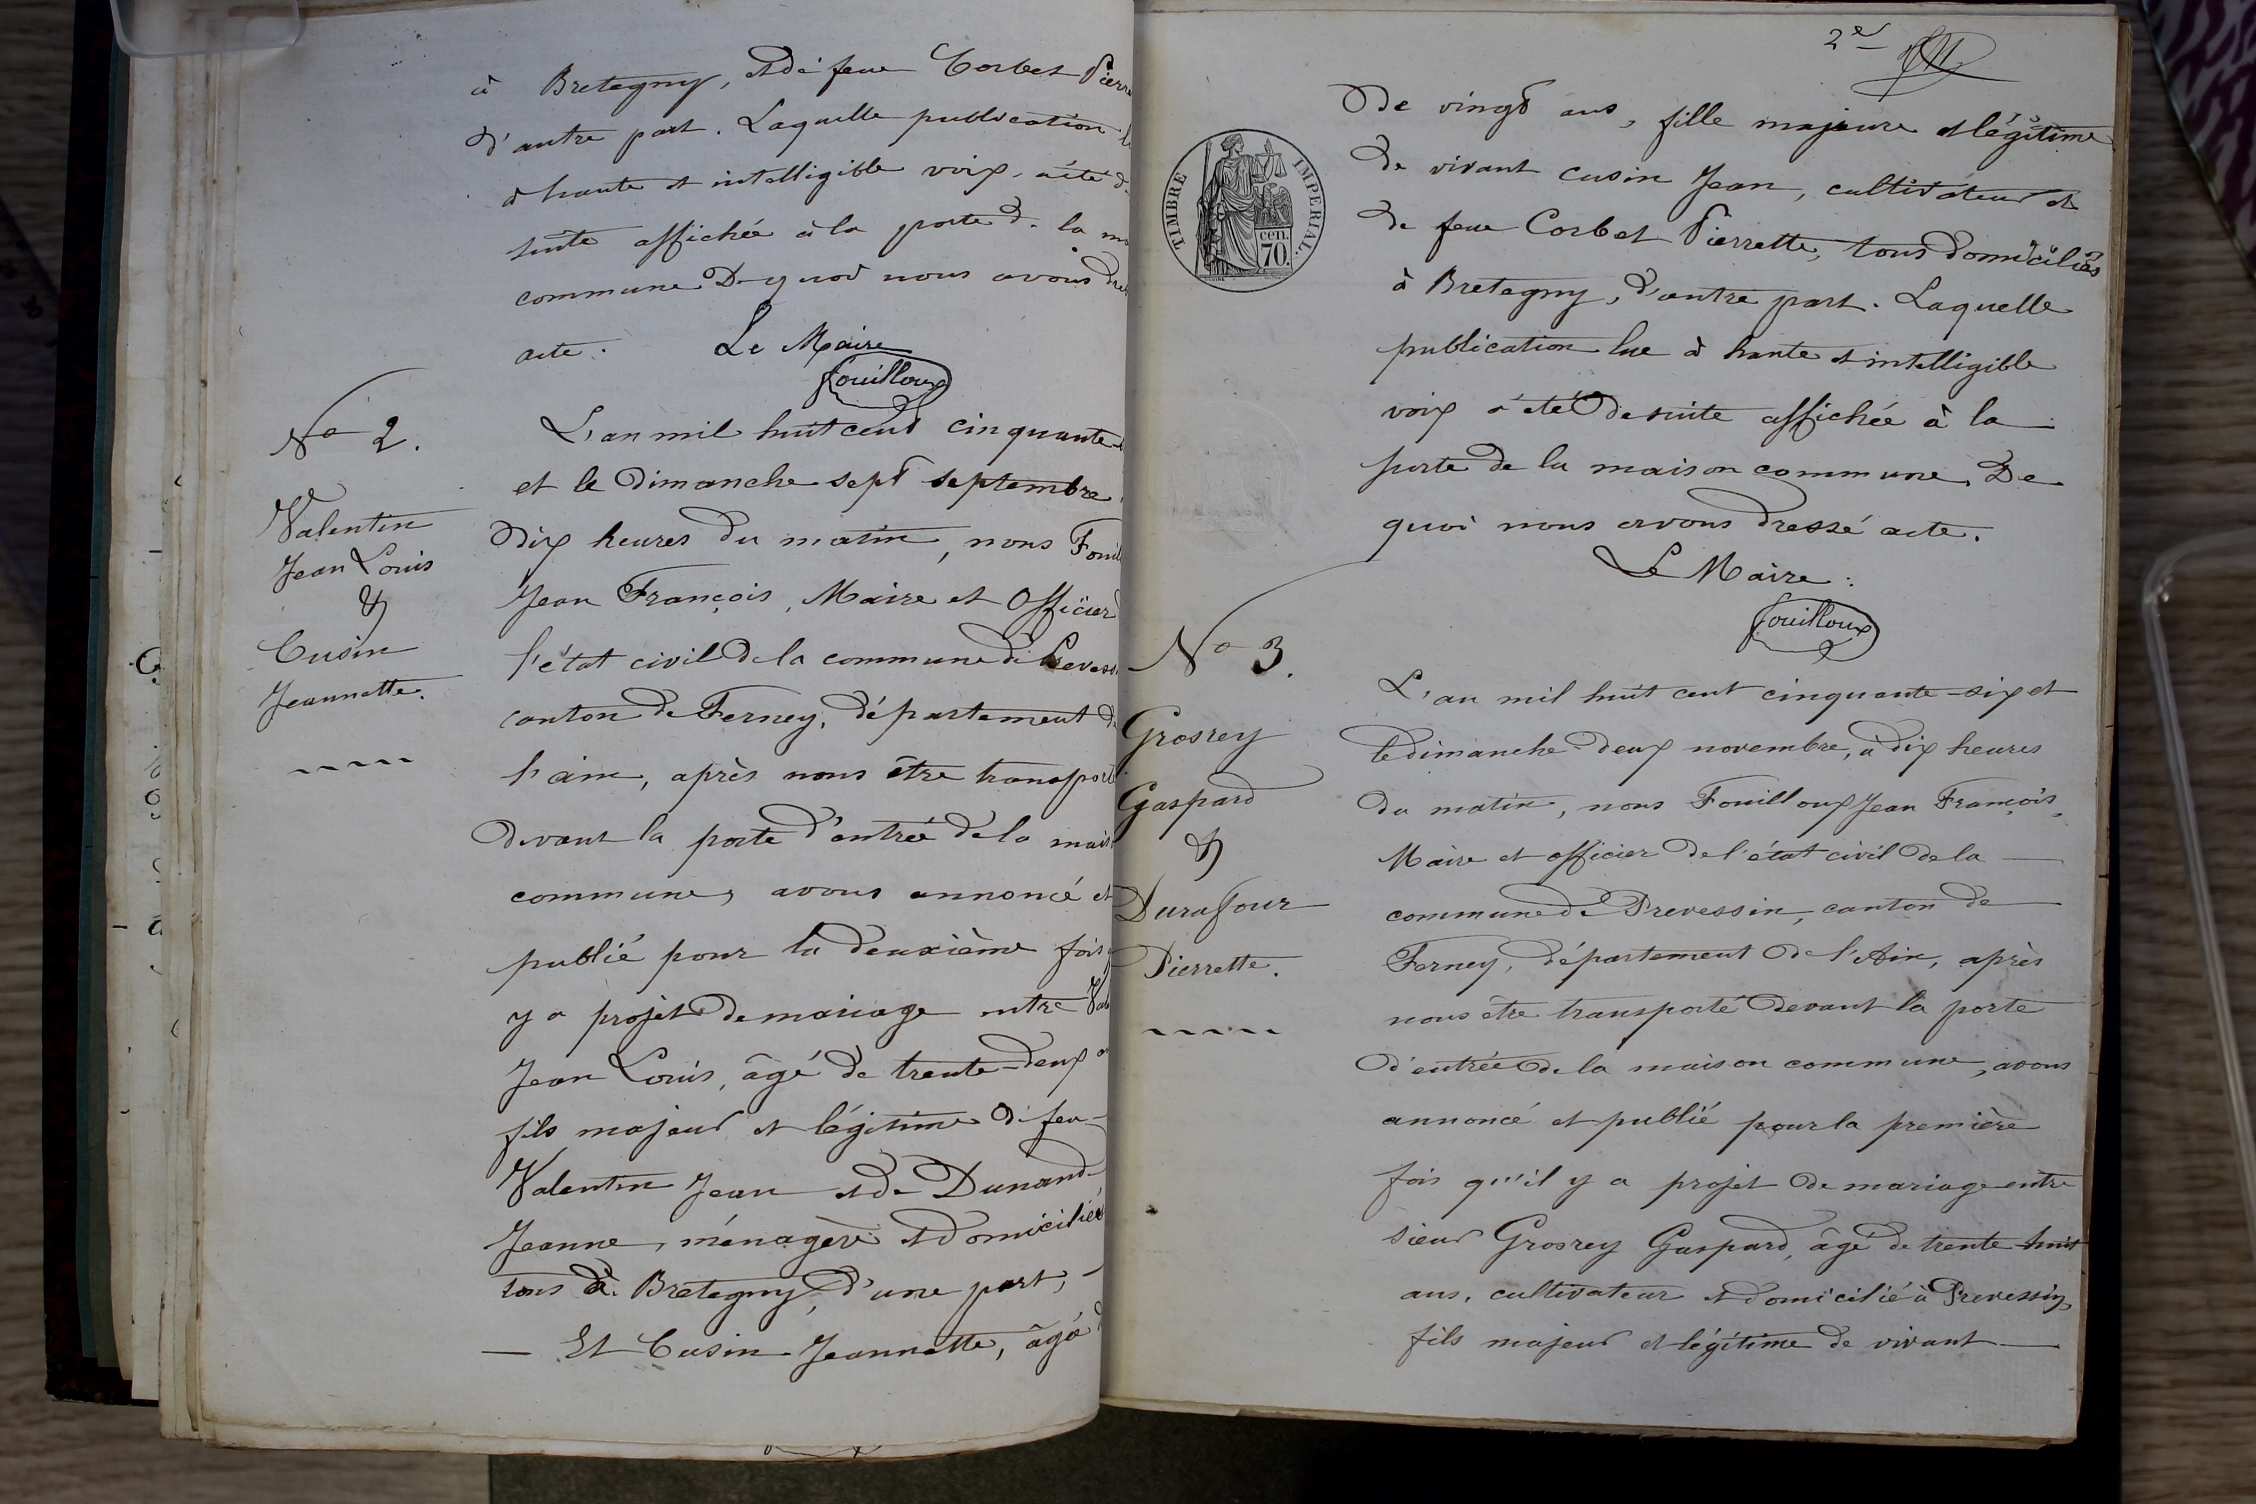 à Bretegny, et de feue Corbet Pierre
d'autre part. Laquelle publication
à haute et intelligible voix, a été d
suite affichée à la porte de la m
commune. De quoi nous avons dre
acte. Le Maire
fouilloux
No 2.
Valentin
Jean Louis
&
Cusin
Jeannette.
L'an mil huit cent cinquante
et le Dimanche sept septembre
dix heures du matin, nous Fouil
Jean François, Maire et Officier
l'état civil de la commune de Prevess
canton de Ferney, département d
l'ain, après nous être transport
devant la porte d'entrée de la mais
commune, avons annoncé et
publié pour la deuxième fois
y a projet de mariage entre Val
Jean Louis, âgé de trente-deux
fils majeur et légitime de feu
Valentin Jean et de Dunand
Jeanne, ménagère et domiciliés
tous à Bretegny, d'une part,
— Et Cusin Jeannette, âgée
2e
TIMBRE IMPERIAL.
cen.
70.
De vingt ans, fille majeure et légitime
de vivant Cusin Jean, cultivateur et
de feue Corbet Pierrette, tous domiciliés
à Bretegny, d'autre part. Laquelle
publication lue à haute et intelligible
voix a été de suite affichée à la
porte de la maison commune. De
quoi nous avons dressé acte.
Le Maire :
fouilloux
No 3.
Grosrey
Gaspard
&
Duraffour
Pierrette.
L'an mil huit cent cinquante-six et
le dimanche deux novembre, à dix heures
du matin, nous Fouilloux Jean François,
Maire et officier de l'état civil de la
commune de Prevessin, canton de
Ferney, département de l'Ain, après
nous être transporté devant la porte
d'entrée de la maison commune, avons
annoncé et publié pour la première
fois qu'il y a projet de mariage entre
sieur Grosrey Gaspard, âgé de trente-huit
ans, cultivateur et domicilié à Prevessin,
fils majeur et légitime de vivant